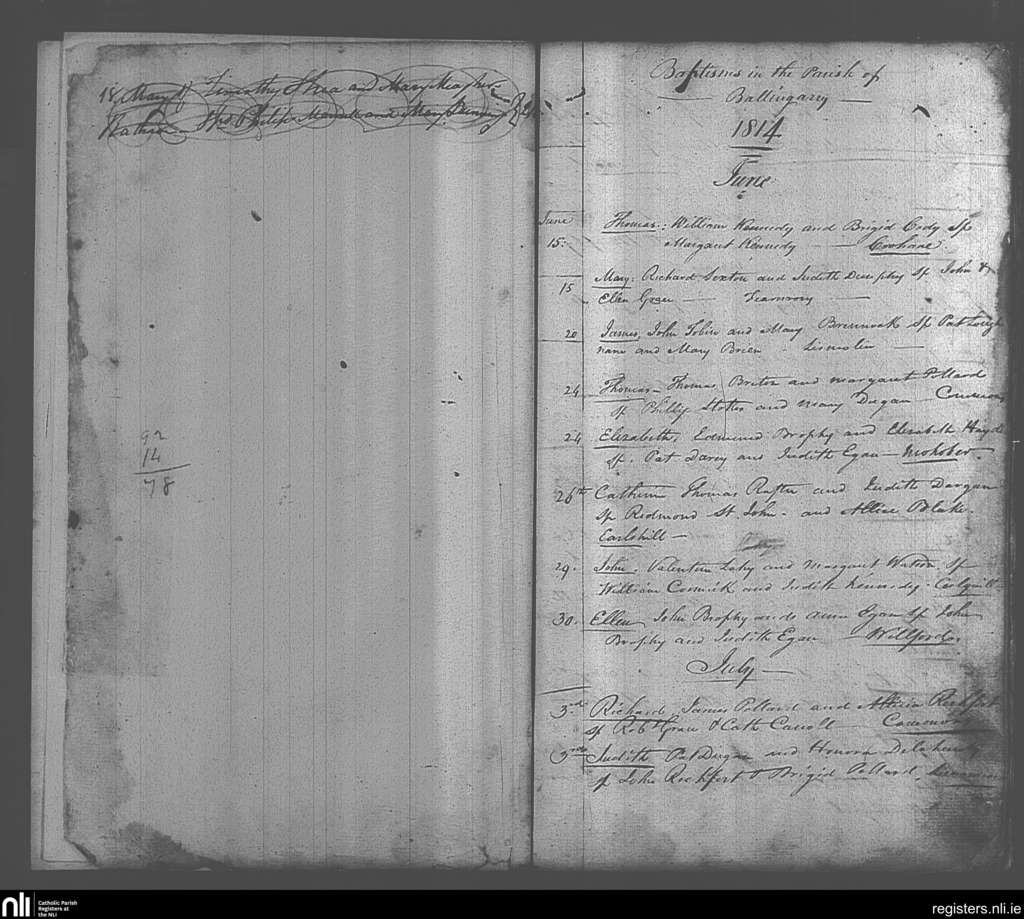 18 May Timothy Shea and Mary Meagher
Philip and Mary
92
14
78
Baptisms in the Parish of
Ballingarry
1814
June
June
15. Thomas: William Kennedy and Brigid Cody Sp
Margaret Kennedy
15 Mary: Richard Sexton and Judith Dunphy Sp. John &
Ellen Green
20 James, John Tobin and Mary Sp Pat Lough
nane and Mary Brien Lismolin
24 Thomas Thomas Breton and Margaret Pollard
Sp Phillip Stokes and Mary Dugan Commons
24 Elizabeth, Edmund Brophy and Elizabeth Hayde
Sp. Pat Darcy and Judith Egan Mohober
26th Catherine Thomas Rafter and Judith Dargan
Sp Redmond St. John. and Allice Blake.
Earlshill
29. John. Valentine Lahy and Margaret Watson. Sp
William Cormick and Judith Kennedy.
30. Ellen John Brophy and Anne Egan Sp John
Brophy and Judith Egan Willford.
July
3rd Richard, James Pollard and Rochfort
Sp Robt Grace & Cath Carroll Commons
3rd Judith Pat Dugan and Honora Delahunty
Sp John Rochfort & Brigid Pollard.
nli Catholic Parish
Registers at
the NLI
registers.nli.ie